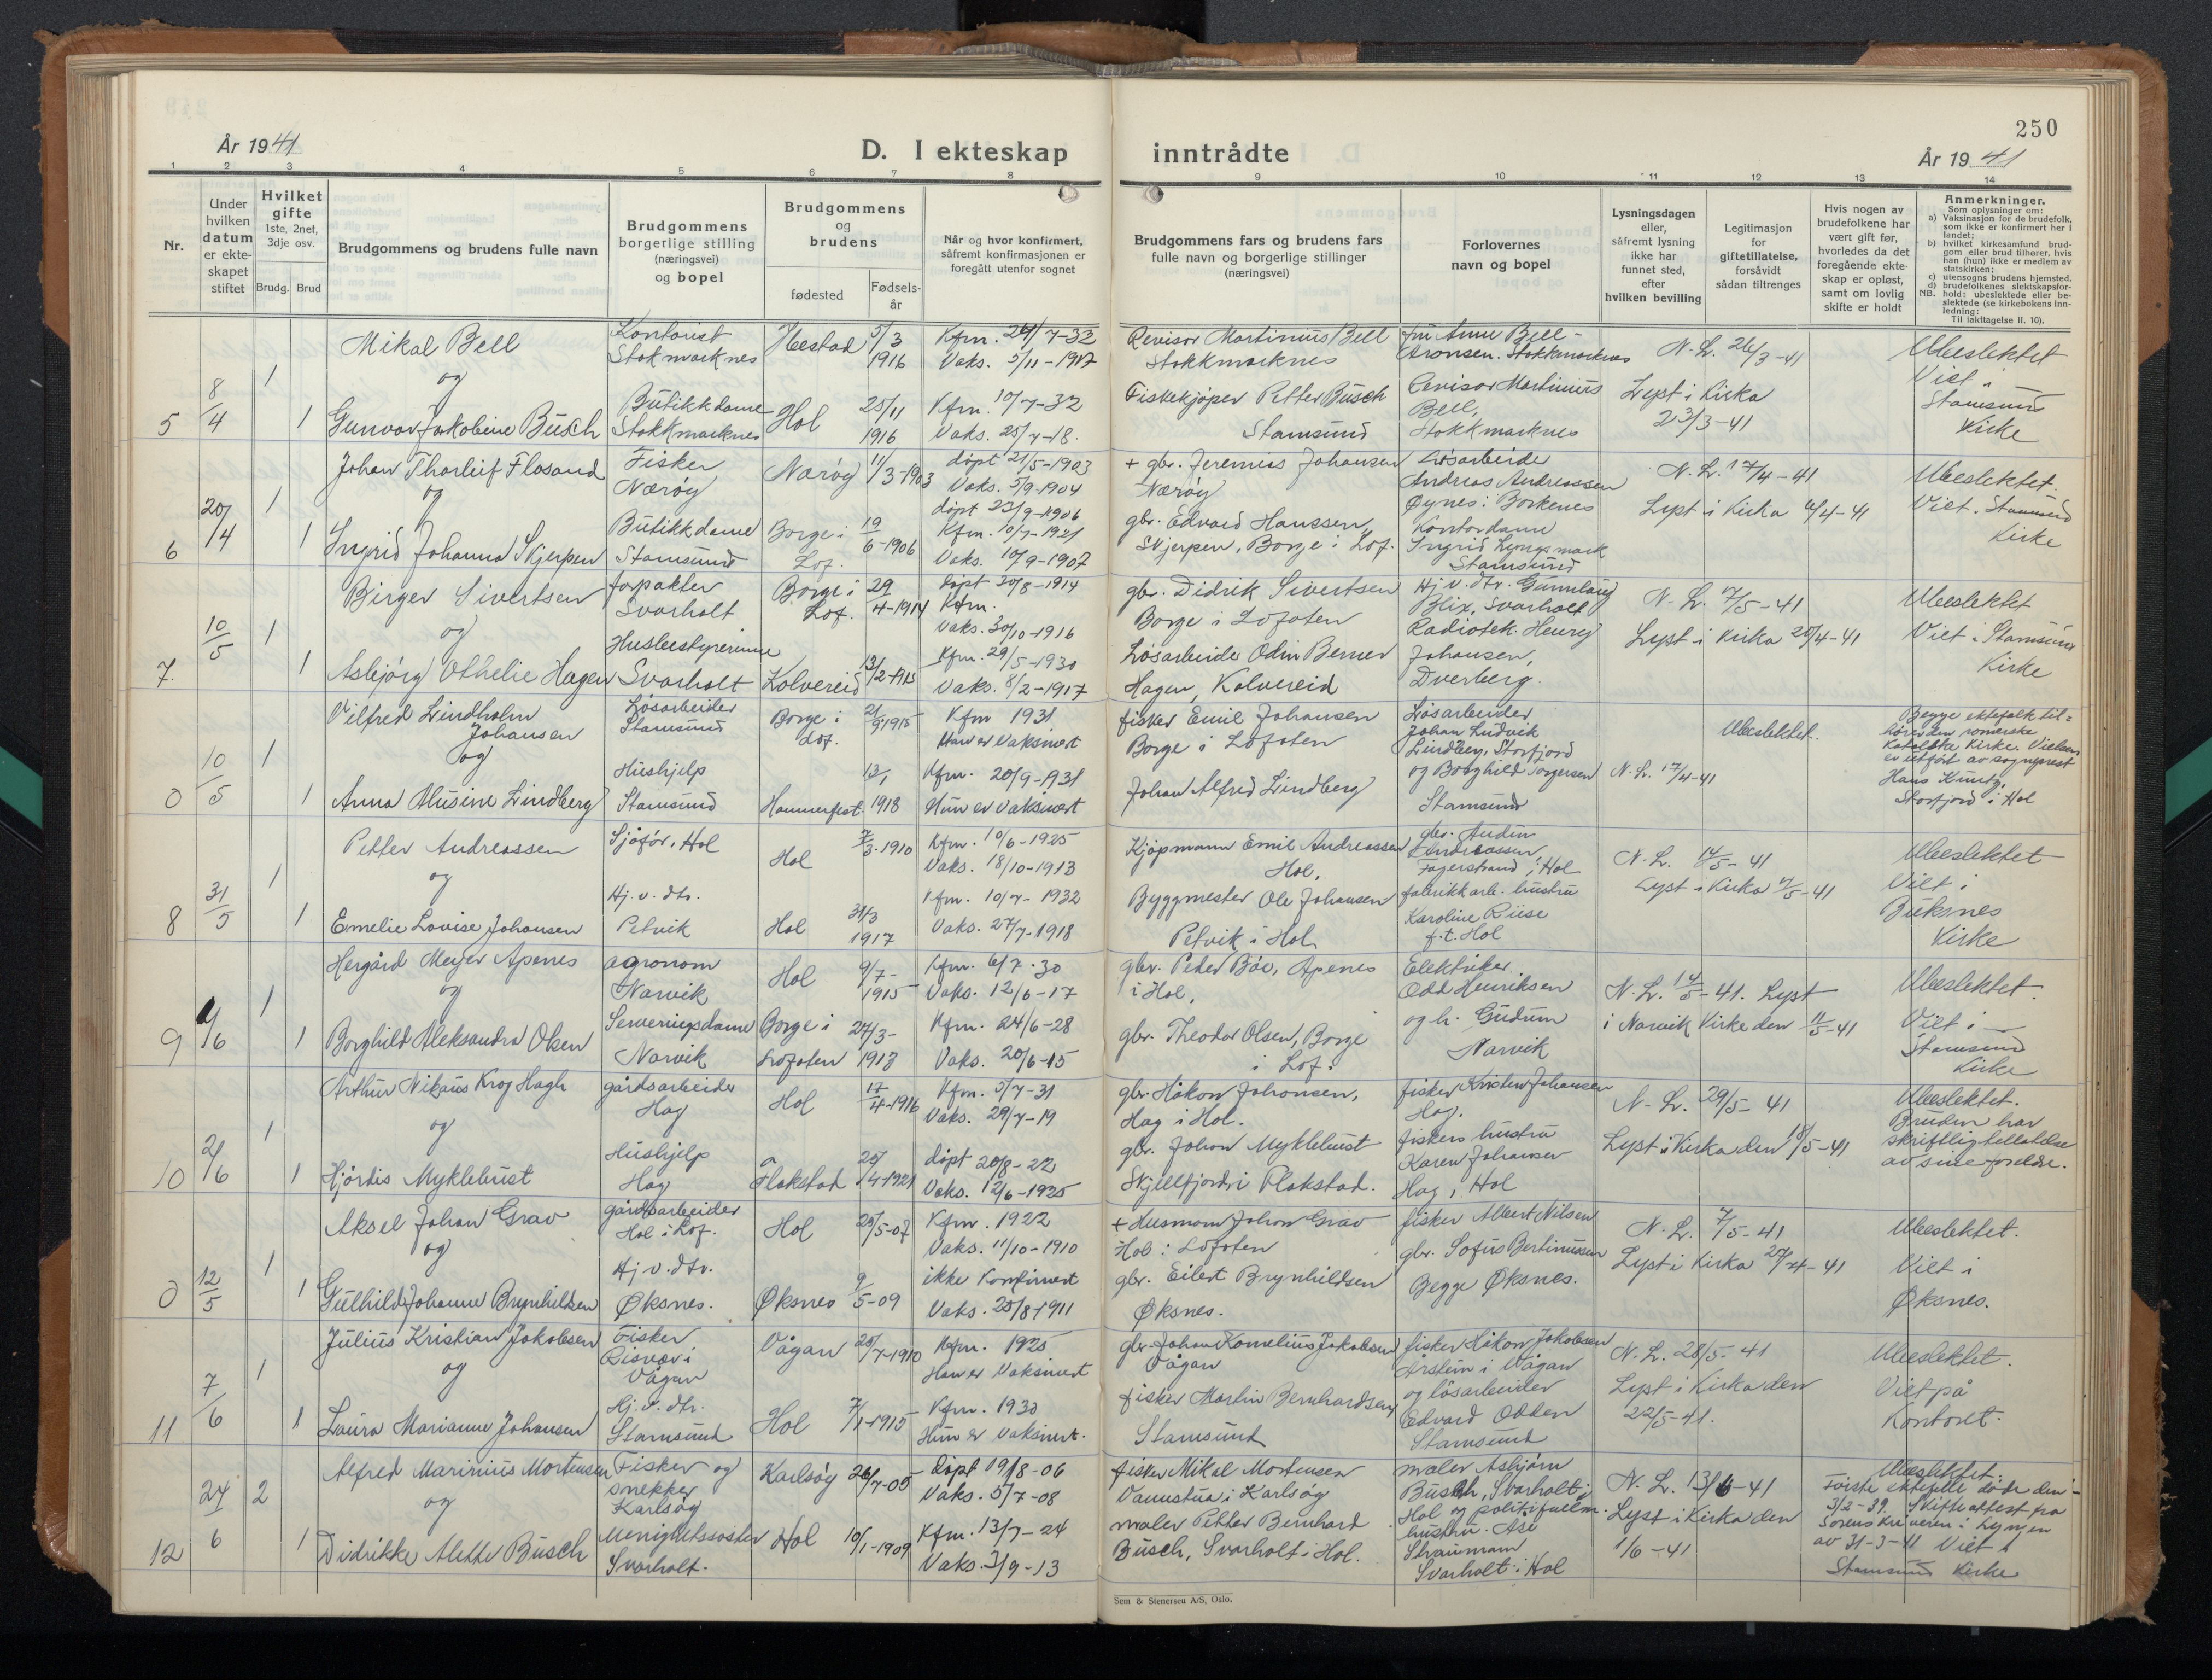 250
År 1941
D. I ekteskap inntrådte
År 1941
1 2 3 4 5 6 7 8 9 10 11 12 13 14
Nr.
Under hvilken datum er ekte-skapet stiftet
Hvilket gifte 1ste, 2net, 3dje osv.
Brudg. Brud
Brudgommens og brudens fulle navn
Brudgommens borgerlige stilling (næringsvei) og bopel
Brudgommens og brudens
fødested
Fødsels-år
Når og hvor konfirmert, såfremt konfirmasjonen er foregått utenfor sognet
Brudgommens fars og brudens fars fulle navn og borgerlige stillinger (næringsvei)
Forlovernes navn og bopel
Lysningsdagen eller, såfremt lysning ikke har funnet sted, efter hvilken bevilling
Legitimasjon for giftetillatelse, forsåvidt sådan tiltrenges
Hvis nogen av brudefolkene har vært gift før, hvorledes da det foregående ekte-skap er opløst, samt om lovlig skifte er holdt
Anmerkninger.
Som oplysninger om:
a) Vaksinasjon for de brudefolk, som ikke er konfirmert her i landet;
b) hvilket kirkesamfund brud-gom eller brud tilhører, hvis han (hun) ikke er medlem av statskirken;
c) utensogns brudens hjemsted.
d) brudefolkenes slektskapsfor-hold: ubeslektede eller be-slektede (se kirkebokens inn-ledning:
NB. Til iakttagelse II. 10).
5
8/4
1
1
Mikal Bell
og
Gunvor Jakobine Busch
Kontorist
Stokmarknes
Butikkdame
Stokkmarknes
Hol
5/3
1916
25/11
1916
Kfm. 24/7-32
Vaks. 5/11-1917
Kfm. 10/7-32
Vaks. 25/7-18.
Revisor Martinius Bell
Stokkmarknes
Fiskekjøper Petter Busch
Stamsund
fru Anne Bell-
Aronsen. Stokkmarknes
Revisor Martinius
Bell,
Stokkmarknes
N. L. 26/3-41
Lyst i Kirka
23/3-41
Ubeslektet
Viet i
Stamsund
Kirke
6
20/4
1
1
Johan Thorleif Flosand
og
Ingrid Johanna Skjerpen
Fisker
Nærøy
Butikkdame
Stamsund
Nærøy
Borge i
Lof.
11/3-1903
19/6-1906
døpt 21/5-1903
Vaks. 5/9-1904
døpt 23/9-1906
Kfm. 10/7-1921
Vaks. 10/9-1907
+ gbr. Jeremias Johansen
Nærøy
gbr. Edvard Hanssen,
Skjerpen, Borge i Lof.
Løsarbeide
Andreas Andreassen
Øynes i Borkenes
Kontordame
Ingrid Lyngsmark
Stamsund
N. L. 17/4-41
Lyst i Kirka 4/4-41
Ubeslektet.
Viet. Stamsund
Kirke
7.
10/5
1
1
Birger Sivertsen
og
Asbjørg Othelie Hagen
forpakter
Svarholt
Husbestyrerinne
Svarholt
Borge i
Lof.
Kolvereid
29/4-1914
13/2-1915
Døpt 30/8-1914
Kfm.
Vaks. 30/10-1916
Kfm. 29/5-1930
Vaks. 8/2-1917
gbr. Didrik Sivertsen
Borge i Lofoten
Løsarbeider Odin Berner
Hagen, Kolvereid
Hj. v. dtr. Gunnlaug
Blix, Svarholt
Radiotek. Henry
Johansen,
Dverberg.
N. L. 7/5-41
Lyst i Kirka 20/4-41
Ubeslektet
Viet i Stamsund
Kirke
0
10/5
1
1
Vilfred Lindholm
Johansen
og
Anna Alusine Lindberg
Løsarbeider
Stamsund
Hushjelp
Stamsund
Borge i
Lof.
Hammerfest
21/9 1915
13/1
1918
Kfm 1931
Han er Vaksinert
Kfm. 20/9-1931
Hun er Vaksinert
fisker Emil Johansen
Borge i Lofoten
Johan Alfred Lindberg
Løsarbeider
Johan Ludvik
Lindberg, Storfjord
og Borghild Torgersen
Stamsund
N. L. 17/4-41
Ubeslektet.
Begge ektefolk til=
hører den romerske
Katolske Kirke. Vielsen
er utført av sogneprest
Hans Kuntz,
Storfjord i Hol
8
31/5
1
1
Petter Andreassen
og
Emelie Lovise Johansen
Sjåfør, Hol
Hj. v. dtr.
Petvik
Hol
Hol
7/3-1910
31/3
1917
Kfm. 10/6-1925
Vaks. 18/10-1913
Kfm. 10/7-1932
Vaks. 27/7-1918
Kjøpmann Emil Andreassen
Hol,
Byggmester Ole Johansen
Petvik i Hol
gbr. Audun
Andreassen
Fagerstrand i Hol
fabrikkarb. hustru
Karoline Riise
f.t. Hol
N. L. 14/5-41
Lyst i Kirka 4/5-41
Ubeslektet
Viet i
Buksnes
Kirke
9
1/6
1
1
Hergård Meyer Apenes
og
Borghild Aleksandra Olsen
agronom
Narvik
Serveringsdame
Narvik
Hol
Borge i
Lofoten
9/7-
1915
27/3-
1913
Kfm. 6/7-30
Vaks. 12/6-17
Kfm. 24/6-28
Vaks. 20/6-15
gbr. Peder Bøe, Apenes
i Hol,
gbr. Theodor Olsen, Borge
i Lof.
Elektriker
Odd Henriksen
og h. Gudrun
Narvik
N. L. 14/5-41. Lyst
i Narvik Kirke den 11/5-41
Ubeslektet.
Viet i
Stamsund
Kirke
10
2/6
1
1
Arthur Nikaus Krog Hagh
og
Hjørdis Myklebust
gårdsarbeider
Hag
Hushjelp
Hag
Hol
Flakstad
17/4-1916
20/4-1921
Kfm. 5/7-31
Vaks. 29/7-19
døpt 20/8-22
Vaks. 12/6-1925
gbr. Håkon Johansen,
Hag i Hol.
gbr. Johan Myklebust
Skjellfjord i Flakstad.
fisker Kristen Johansen
Hag.
fiskers hustru
Karen Johansen
Hag i Hol
N. L. 29/5-41
Lyst i Kirka den 18/5-41
Ubeslektet.
Bruden har
skriftlig tillatelse
av sine foreldre.
0
12/5
1
1
Aksel Johan Grav
og
Gulhild Johanne Brynhildsen
gårdsarbeider
Hol i Lof.
Hj. v. dtr.
Øksnes.
Hol
Øksnes
20/5-07
9/5-09
Kfm. 1922
Vaks. 11/10-1910
ikke Konfirmert
Vaks. 25/8-1911
+ Husmann Johan Grav
Hol i Lofoten
gbr. Eilert Brynhildsen
Øksnes.
fisker Albert Nilsen
gbr. Sofus Bertinussen
Begge Øksnes.
N. L. 7/5-41
Lyst i Kirka 27/4-41
Ubeslektet.
Viet i
Øksnes.
11
7/6
1
1
Julius Kristian Jakobsen
og
Laura Marianne Johansen
Fisker
Risvær i
Vågan
Hj. v. dtr.
Stamsund
Vågan
Hol
20/7-1910
7/1-1915
Kfm. 1925
Han er Vaksinert
Kfm. 1930
Hun er Vaksinert.
gbr. Johan Kornelius Jakobsen
Vågan
fisker Martin Bernhardsen
Stamsund
fisker Håkon Jakobsen
Årstein i Vågan
og løsarbeider
Edvard Odden
Stamsund
N. L. 28/5-41
Lyst i Kirka den
22/5-41.
Ubeslektet.
Viet på
Kontoret.
12
24/6
2
1
Alfred Marinius Mortensen
og
Didrikke Alette Busch
Fisker og
snekker
Karlsøy
Menighetssøster
Svarholt.
Karlsøy
Hol
26/7-05
10/1-1909
Døpt 19/8-06
Vaks. 5/7-08
Kfm. 13/7-24
Vaks. 3/9-13
fisker Mikal Mortensen
Vannstua i Karlsøy
maler Petter Bernhard
Busch, Svarholt i Hol.
maler Asbjørn
Busch, Svarholt i
Hol og politifullm.
hustru. Åse
Straumann
Svarholt i Hol
N. L. 13/6-41
Lyst i Kirka den
1/6-41
Ubeslektet.
Første ektefelle døde den
3/2-39. Skifteattest fra
Sorenskriveren i Lyngen
av 31-3-41 Viet i
Stamsund Kirke
Sem & Stenersen A/S, Oslo.